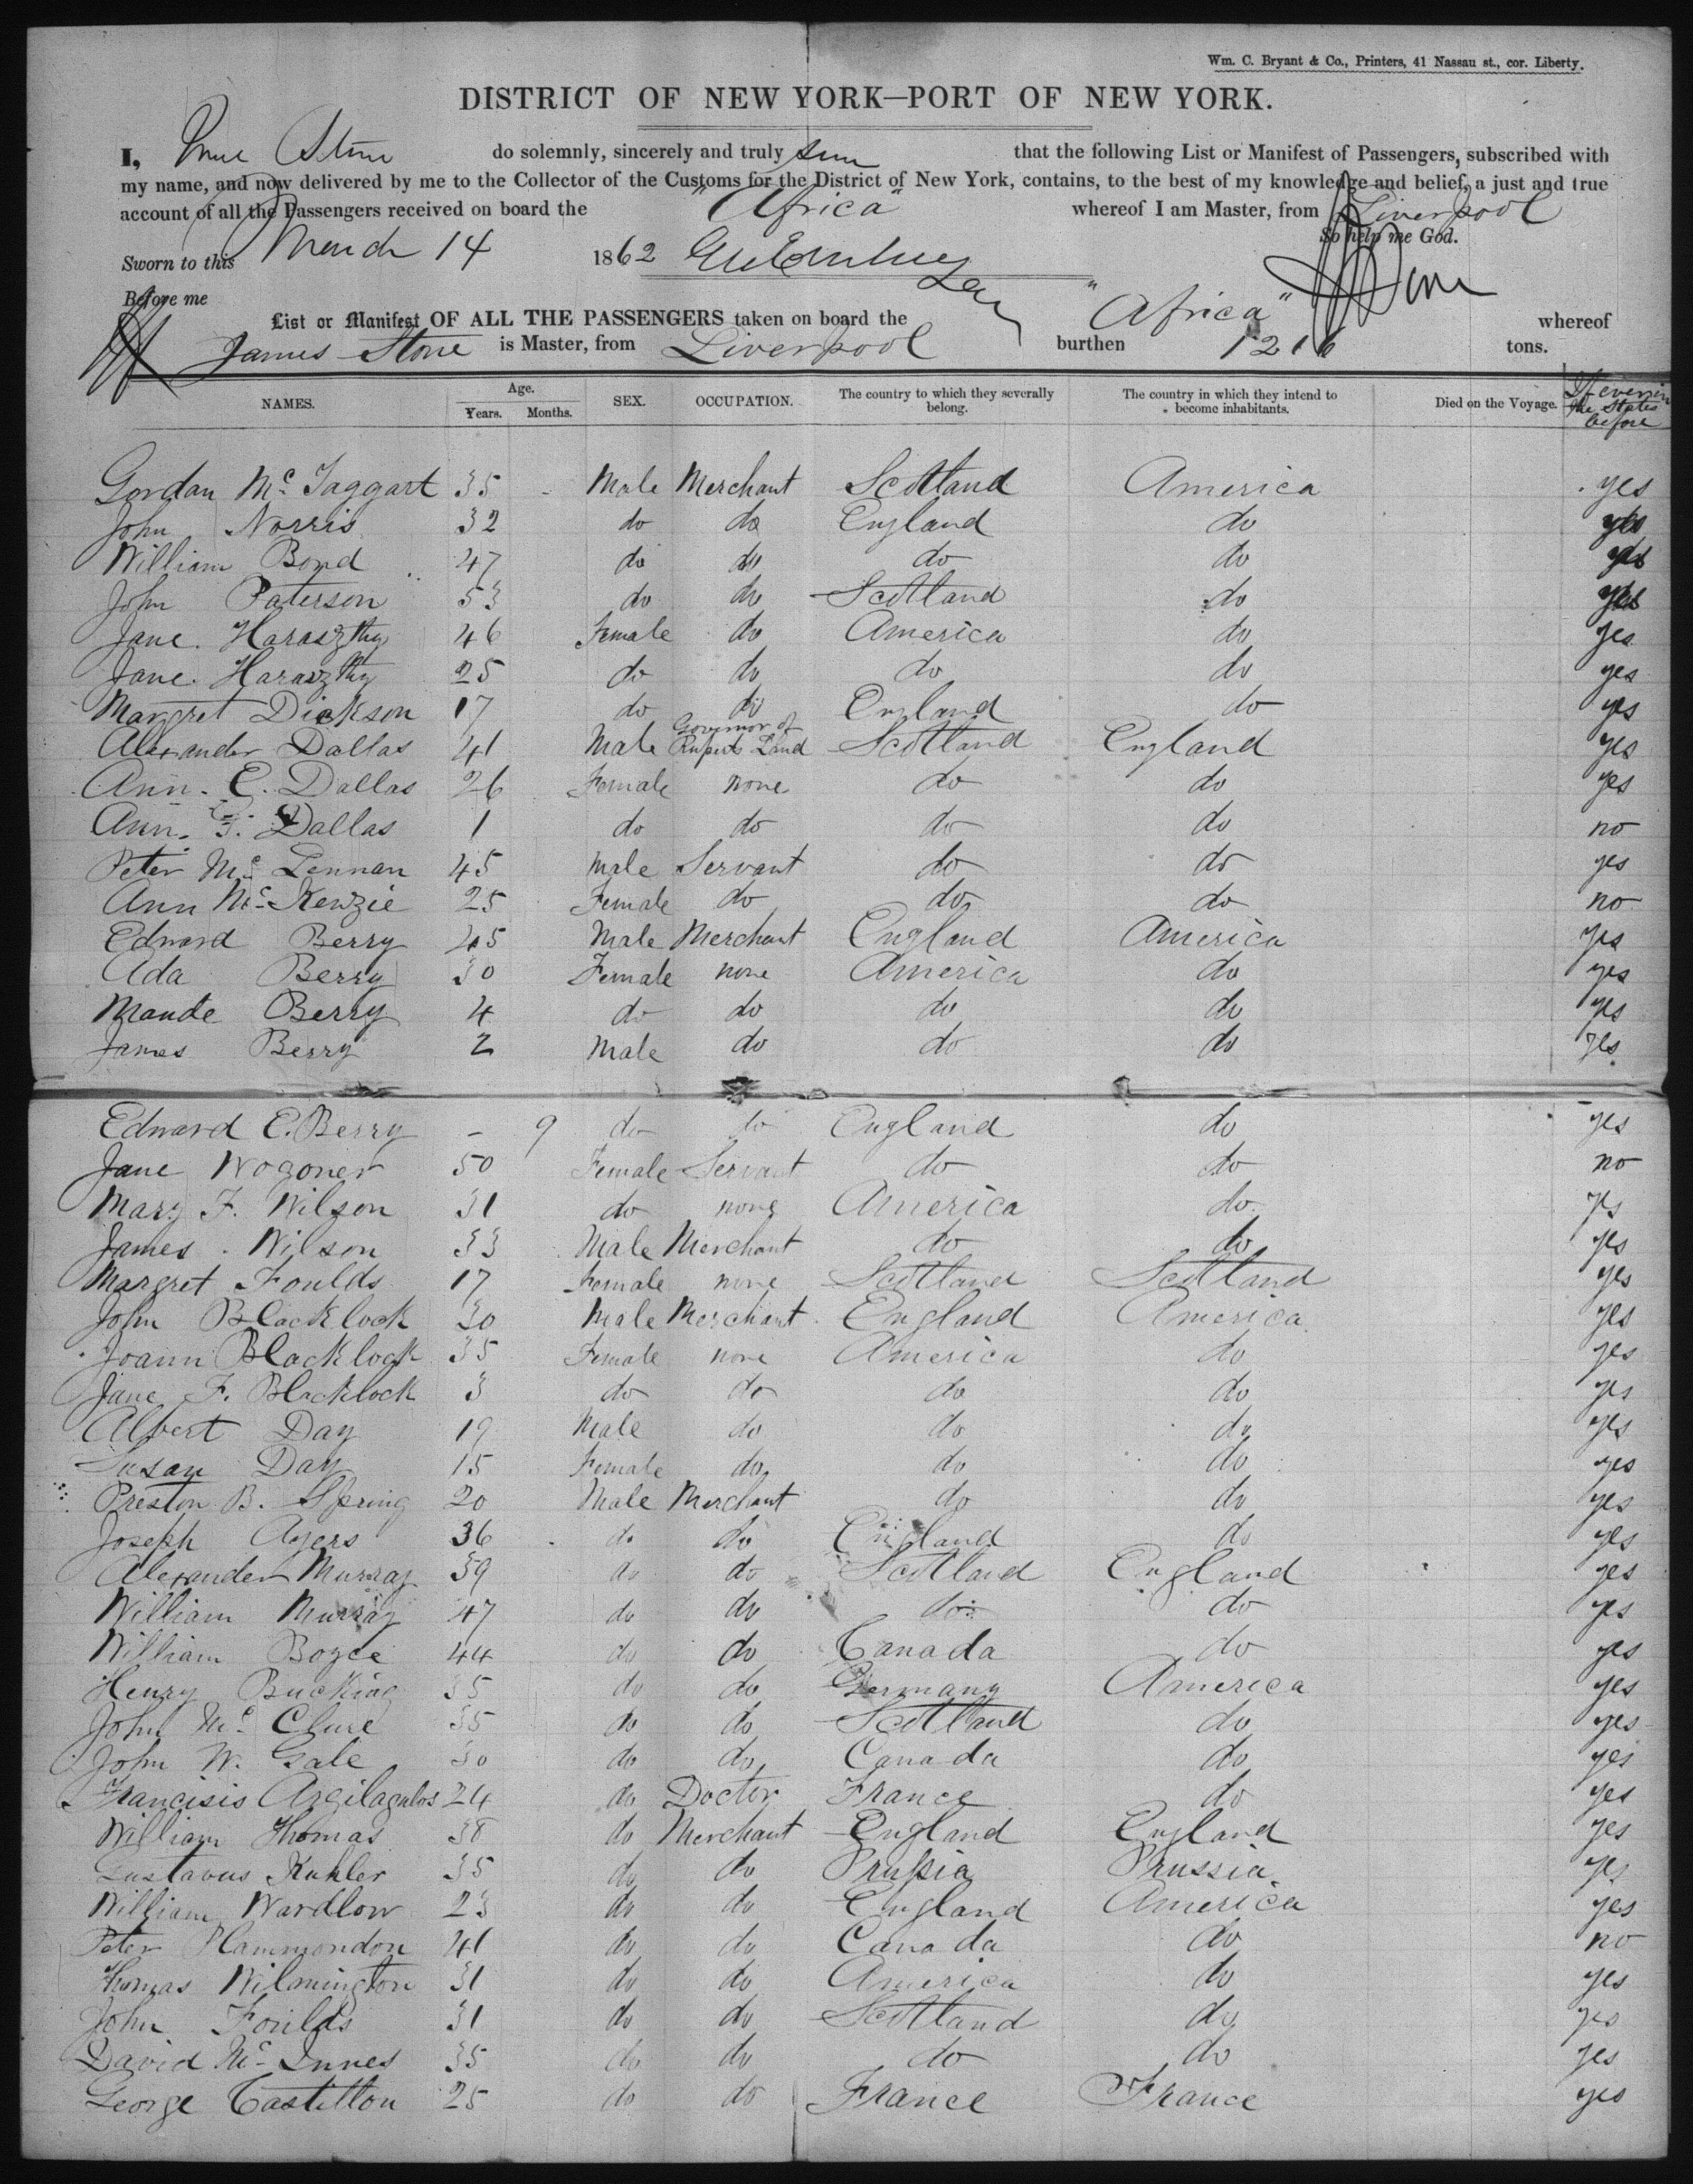 Wm. C. Bryant & Co., Printers, 41 Nassau st., cor. Liberty.
DISTRICT OF NEW YORK—PORT OF NEW YORK.
I, Stone do solemnly, sincerely and truly that the following List or Manifest of Passengers, subscribed with
my name, and now delivered by me to the Collector of the Customs for the District of New York, contains, to the best of my knowledge and belief, a just and true
account of all the Passengers received on board the "Africa" whereof I am Master, from Liverpool
So help me God.
Sworn to this March 14 1862
Before me
List or Manifest OF ALL THE PASSENGERS taken on board the "Africa" whereof
James Stone is Master, from Liverpool burthen 1216 tons.
NAMES. Age. Years. Months. SEX. OCCUPATION. The country to which they severally belong. The country in which they intend to become inhabitants. Died on the Voyage. If ever in the States before
Gordan Mc Taggart 35 Male Merchant Scotland America yes
John Norris 32 do do England do yes
William Bond 47 do do do do yes
John Paterson 53 do do Scotland do yes
Jane Haraszthy 46 Female do America do yes
Jane Haraszthy 25 do do do do yes
Margret Dickson 17 do do England do yes
Alexander Dallas 41 Male Governor of Ruperts Land Scotland England yes
Ann. C. Dallas 26 Female none do do yes
Ann. Dallas 1 do do do do no
Peter Mc Lennan 45 Male Servant do do yes
Ann Mc Kenzie 25 Female do do do no
Edward Berry 45 Male Merchant England America yes
Ada Berry 30 Female none America do yes
Maude Berry 4 do do do do yes
James Berry 2 Male do do do yes
Edward E. Berry – 9 do do England do yes
Jane Wogoner 50 Female Servant do do no
Mary F. Wilson 31 do none America do yes
James Wilson 33 Male Merchant do do yes
Margret Foulds 17 Female none Scotland Scotland yes
John Blacklock 30 Male Merchant England America yes
Joann Blacklock 35 Female none America do yes
Jane F. Blacklock 3 do do do do yes
Albert Day 19 Male do do do yes
Susan Day 15 Female do do do yes
Preston B. Spring 20 Male Merchant do do yes
Joseph Ayers 36 do do England do yes
Alexander Murray 39 do do Scotland England yes
William Murray 47 do do do do yes
William Boyce 44 do do Canada do yes
Henry Bucking 35 do do Germany America yes
John Mc Clure 35 do do Scotland do yes
John W. Gale 30 do do Canada do yes
Francisis Argilagulos 24 do Doctor France do yes
William Thomas 38 do Merchant England England yes
Gustavus Kuhler 35 do do Prussia Prussia yes
William Wardlow 23 do do England America yes
Peter Plammondon 41 do do Canada do no
Thomas Wilmington 31 do do America do yes
John Foulds 31 do do Scotland do yes
David Mc Innes 35 do do do do yes
George Castillon 25 do do France France yes